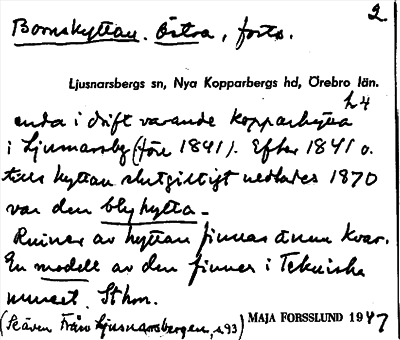 2.
Bornshyttan. Östra, forts.
Ljusnarsbergs sn, Nya Kopparbergs hd, Örebro län.
enda i drift varande kopparhytta
i Ljusnarsbg (före 1841). Efter 1841 o.
tills hyttan slutgiltigt nedlades 1870
var den blyhytta.
Ruiner av hyttan finnas ännu kvar.
En modell av den finnes i Tekniska
museet. Sthm.
(Skäven Från Ljusnarsbergen, s. 93) MAJA FORSSLUND 1947